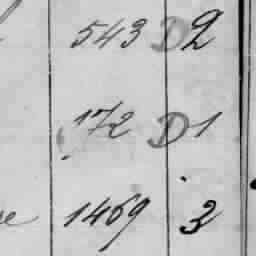 543 D 2
172 D 1
1469 3